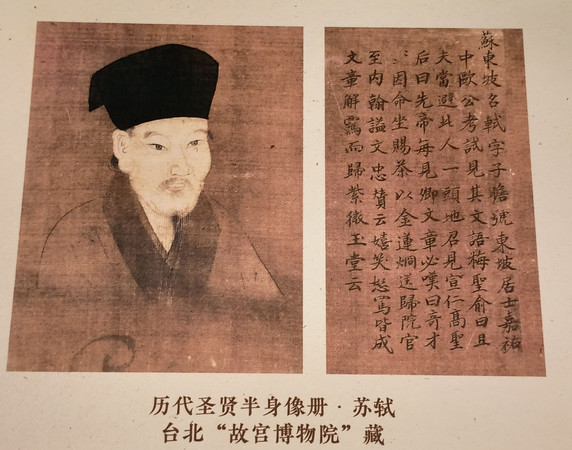 蘇東坡名軾字子瞻號東坡居士嘉祐
中歐公考試見其文語梅聖俞曰且
夫當避此人一頭地召見宣仁高聖
后曰先帝每見卿文章必嘆曰奇才
〻因命坐賜茶以金蓮炯送歸院官
至内翰謚文忠賛云嬉笑怒罵皆成
文章解羈而歸紫微玉堂云
历代圣贤半身像册·苏轼
台北“故宫博物院”藏